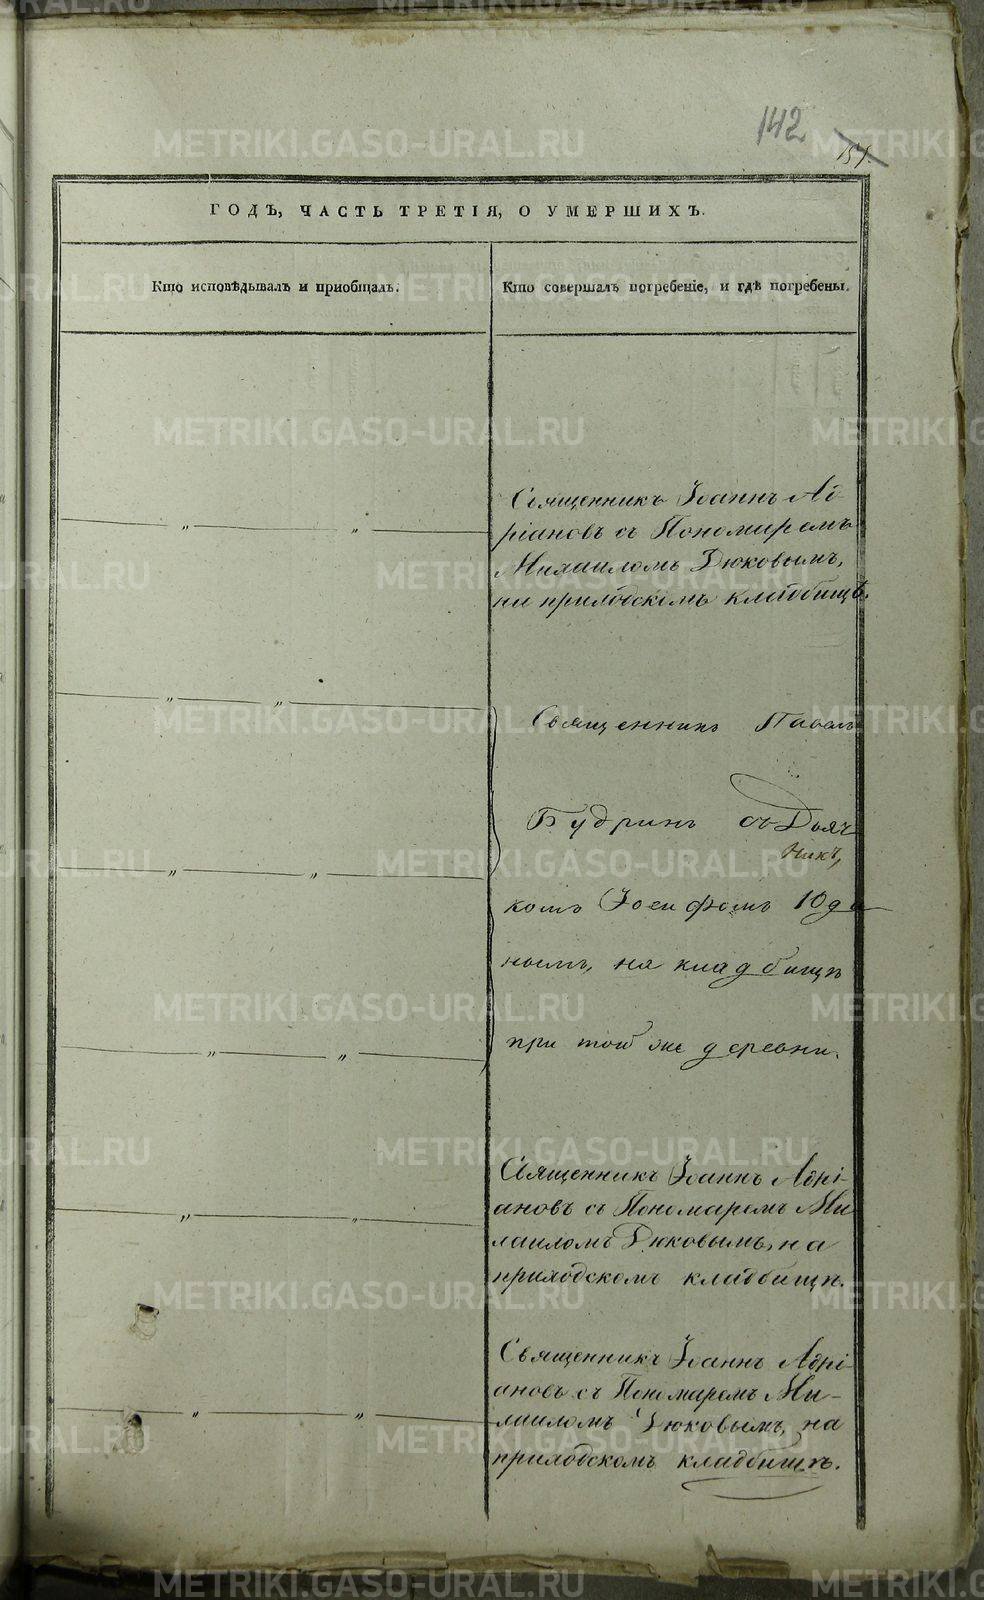 142
151.
ГОДЪ, ЧАСТЬ ТРЕТІЯ, О УМЕРШИХЪ.
Кто исповѣдывалъ и приобщалъ.
Кто совершалъ погребеніе, и гдѣ погребены.
Священникъ Іоаннъ Ад-
ріановъ съ Пономаремъ
Михаиломъ Дюковымъ,
на приходскомъ кладбищѣ.
Священникъ Павелъ
Будринъ съ Дьяч-
комъ Іосифомъ Юди
нымъ, на кладбищѣ
при той же деревни.
Священникъ Іоаннъ Адрі-
ановъ съ Пономаремъ Ми
хаиломъ Дюковымъ, на
приходскомъ кладбищѣ.
Священникъ Іоаннъ Адрі-
ановъ съ Пономаремъ Ми-
хаиломъ Дюковымъ, на
приходскомъ кладбищѣ.
METRIKI.GASO-URAL.RU